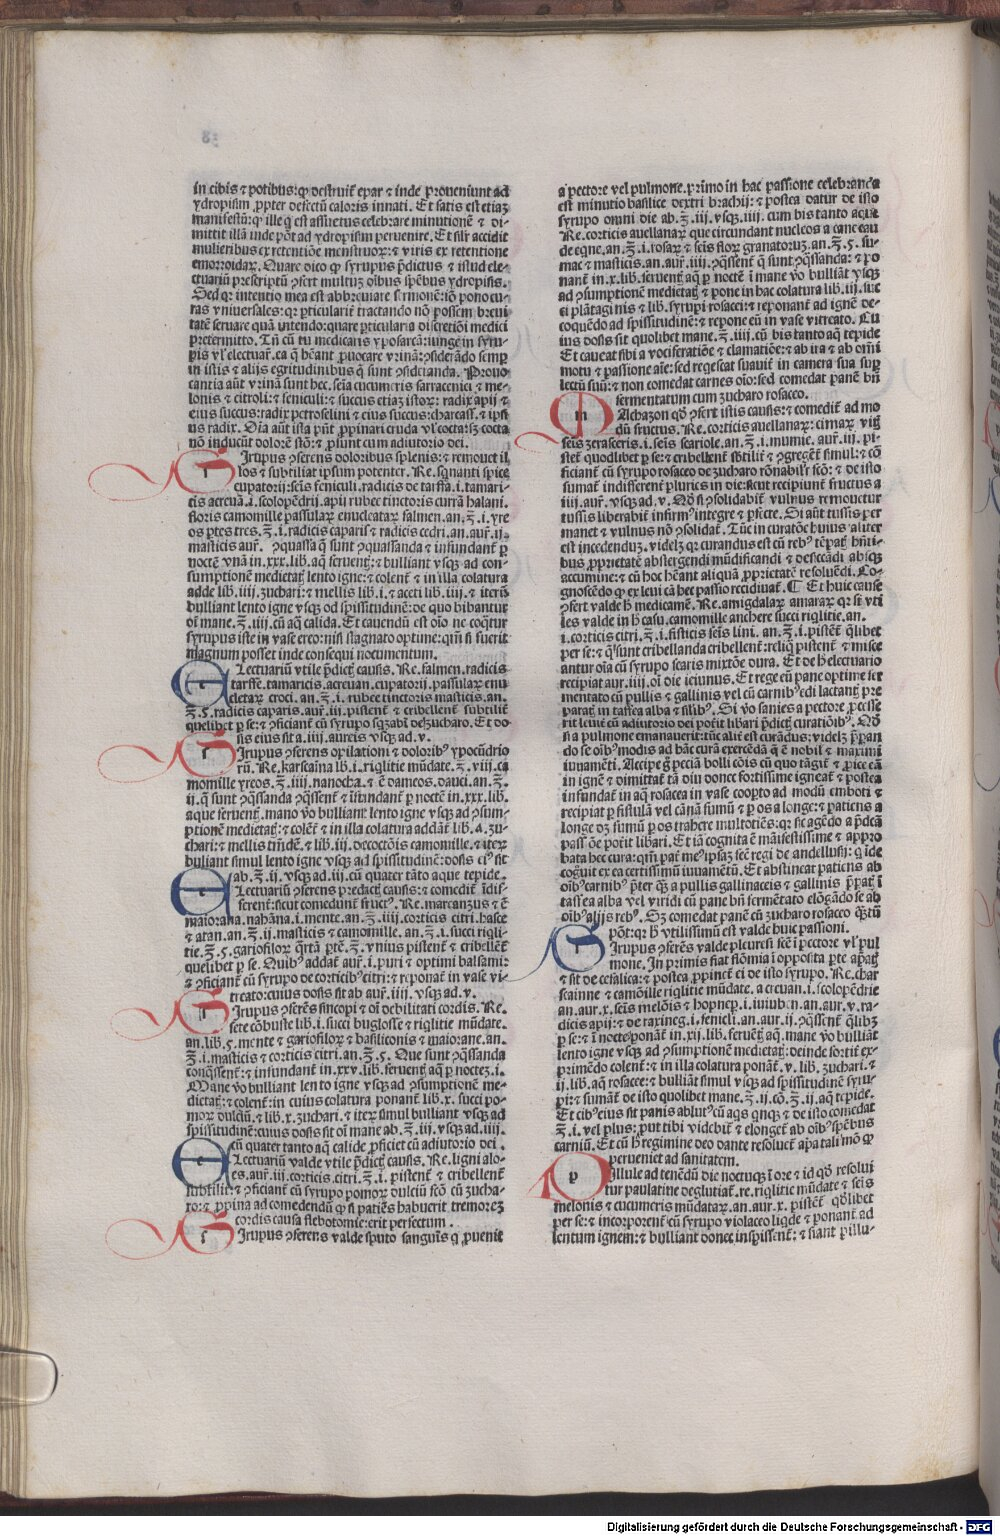 in cibis ⁊ potibus: qꝫ destruit̃ epar ⁊ inde ꝓveniunt ad
ydropisim ꝓpter defectũ caloris innati. Et satis est etiaz
manifestũ: qꝛ ille q̃ est assuetus celebrare minutionẽ ⁊ di-
mittit illã inde põt ad ydropisim pervenire. Et silr̃ accidit
mulieribus ex retentiõe menstruoꝝ: ⁊ viris ex retentione
emorroidaꝝ. Quare dico qꝫ syrupus p̃dictus ⁊ istud ele-
ctuariũ prescriptũ ꝯfert multuz oĩbus spẽbus ydropisis.
Sed qꝛ intentio mea est abbreviare sermonẽ: iõ pono cu-
ras vniuersales: qꝛ ꝑticularit̃ tractando nõ possem brevi
tatẽ servare quã intendo: quare ꝑticularia discretiõi medici
pretermitto. Tñ cũ tu medicaris yposarcã: iunge in syru-
pis vl̃ electuar̃. ea q̃ hẽant ꝓuocare vrinã: ꝯsiderãdo semꝑ
in istis ⁊ alijs egritudinibus q̃ sunt ꝯsiderãda. Prouo-
cantia aũt vrinã sunt hec. seĩa cucumeris sarraceníci ⁊ me-
lonis ⁊ citroli: ⁊ feniculi: ⁊ succus etiaz istoꝝ: radix apij ⁊
eius succus: radix petroselini ⁊ eius succus: charcaff. ⁊ ipsi
us radix. Oĩa aũt ista pñt ꝓpinari cruda vl̃ cocta: sꝫ cocta
nõ inducũt dolorẽ stõ: ⁊ ꝓsiunt cum adiutorio dei.
Sirupus ꝯferens doloribus splenis: ⁊ remouet il
los ⁊ subtiliat ipsum potenter. Re. sqnanti spice
eupatorij: seĩs feniculi. radicis de taffia. i. tamari-
cis acrevã. i. scolopẽdrij. apij rubee tinctoris currã halani.
floris camomille passulaꝝ enucleataꝝ salmen. an. ℥. i. yre
os ꝑtes tres. ℥. i. radicis caparis ⁊ radicis cedri. an. aur̃. ij.
masticis aur̃. ꝯquassa q̃ sunt ꝯquassanda ⁊ infundant̃ ꝑ
noctẽ vnã in. xxx. lib. aq̃ feruent̃: ⁊ bulliant vsqꝫ ad con-
sumptionem medietat̃ lento igne: ⁊ colent̃ ⁊ in illa colatura
adde lib. iiij. zuchari: ⁊ mellis lib. i. ⁊ aceti lib. iiij. ⁊ iterũ
bulliant lento igne vsqꝫ ad spissitudinẽ: de quo bibantur
oĩ mane. ℥. iiij. cũ aq̃ calida. Et cauendũ est oĩo ne coq̃tur
syrupus iste in vase ereo: nisi stagnato optime: qm̃ si fuerit
magnum posset inde consequi nocumentum.
ELectuariũ vtile p̃dict̃ causis. Re. salmen. radicis
tarffe. tamaricis. acrevan. eupatorij. passulaꝝ enu
cleataꝝ croci. an. ℥. i. rubee tinctoris masticis. an.
℥. 5. radicis caparis. aur̃. iij. pistent̃ ⁊ cribellent̃ subtilit̃
quelibet ꝑ se: ⁊ ꝯficiant̃ cũ syrupo sqzabĩ de zucharo. Et do-
sis eius sit a. iiij. aureis vsqꝫ ad. v.
Sirupus ꝯferens opilationi ⁊ doloribꝰ ypocũdrio
rũ. Re. karscaina lb. i. riglitie mũdate. ℥. viij. ca
momille yreos. ℥. iiij. nanocha. ⁊ ẽ dameos. dauci. an. ℥.
ij. q̃ sunt ꝯq̃ssanda ꝯq̃ssent̃ ⁊ ĩfundant̃ ꝑ noctẽ in. xxx. lib.
aque feruent̃. mano vo bulliant lento igne vsqꝫ ad ꝯsum-
ptionẽ medietat̃: ⁊ colẽt̃ ⁊ in illa colatura addãt̃ lib. 4. zu-
chari: ⁊ mellis tñdẽ. ⁊ lib. iij. decoctõis camomille. ⁊ iteꝝ
buliant simul lento igne vsqꝫ ad spissitudinẽ: dosis eiꝰ sit
ab. ℥. ij. vsqꝫ ad. iij. cũ quater tãto aque tepide.
ELectuariũ ꝯferens predict̃ causis: ⁊ comedit̃ ĩdif-
ferent̃: sicut comedunt̃ fructꝰ. Re. marcanzus ⁊ ẽ
maiorana. nahãna. i. mente. an. ℥. iiij. corticis citri. hasce
⁊ atan. an. ℥. ij. masticis ⁊ camomille. an. ℥. i. succi rigli-
tie. ℥. 5. gariofiloꝝ q̃rtã ꝑtẽ. ℥. vnius pistent̃ ⁊ cribellẽt̃
quelibet ꝑ se. Quibꝰ addat̃ aur̃. i. puri ⁊ optimi balsami:
⁊ ꝯficiant̃ cũ syrupo de corticibꝰ citri: ⁊ reponat̃ in vase vi-
treato: cuius dosis sit ab aur̃. iiij. vsqꝫ ad. v.
Sirupus ꝯferẽs sincopi ⁊ oĩ debilitati cordis. Re.
sete cõbuste lib. i. succi buglosse ⁊ riglitie mũdate.
an. lib. 5. mente ⁊ gariofiloꝝ ⁊ basiliconis ⁊ maiorane. an.
℥. i. masticis ⁊ corticis citri. an. ℥. 5. Que sunt ꝯq̃ssanda
conq̃ssent̃: ⁊ infundant̃ in. xxv. lib. feruent̃ aq̃ ꝑ noctez. i.
Mane vo bulliant lento igne vsqꝫ ad ꝯsumptionẽ me-
dietat̃: ⁊ colent̃: in cuius colatura ponant̃ lib. x. succi po-
moꝝ dulciũ. ⁊ lib. x. zuchari. ⁊ iteꝝ simul bulliant vsqꝫ ad
spissitudinẽ: cuius dosis sit oĩ mane ab. ℥. iij. vsqꝫ ad. iiij.
cũ quater tanto aq̃ calide ꝓficiet cũ adiutorio dei.
ELectuariũ valde vtile p̃dict̃ causis. Re. ligni alo-
es. aur̃. iij. corticis citri. ℥. i. pistent̃ ⁊ cribellent̃
subtilit̃: ⁊ ꝯficiant̃ cũ syrupo pomoꝝ dulciũ fcõ cũ zucha-
ro: ⁊ ꝓpina ad comedendũ qꝫ si patiẽs habuerit tremorez
cordis causa flebotomie: erit perfectum.
Sirupus ꝯferens valde sputo sanguĩs q̃ ꝓuenit
a pectore vel pulmone. primo in hac passione celebranda
est minutio basilice dextri brachij: ⁊ postea datur de isto
syrupo omni die ab. ℥. iij. vsqꝫ. iiij. cum bis tanto aque
Re. corticis avellanaꝝ que circundant nucleos a cane eau
de eqne. an. ℥. i. rosaꝝ ⁊ seĩs floꝝ granatoruz. an. ℥. 5. su-
mac ⁊ masticis. an. aur̃. iiij. ꝯq̃ssent̃ q̃ sunt ꝯq̃ssanda: ⁊ po
nant̃ in. x. lib. feruent̃ aq̃ ꝑ noctẽ ĩ mane vo bulliãt vsqꝫ
ad ꝯsumptionẽ medietat̃ ⁊ pone in hac colatura lib. iij. suc
ci plãtaginis ⁊ lib. syrupi rosacei: ⁊ reponant̃ ad ignẽ de-
coquẽdo ad spissitudinẽ: ⁊ repone eũ in vase vitreato. Cu
ius dosis sit quolibet mane. ℥. iiij. cũ bis tanto aq̃ tepide
Et caueat sibi a vociferatiõe ⁊ clamatiõe: ⁊ ab ira ⁊ ab om̃i
motu ⁊ passione aĩe: sed regescat suauit̃ in camera sua suꝑ
lectũ suũ: ⁊ non comedat carnes oĩo: sed comedat panẽ bñ
fermentatum cum zucharo rosacco.
MAlchazon qđ ꝯfert istis causis: ⁊ comedit̃ ad mo
dũ fructus. Re. corticis avellanaꝝ: cimaꝝ vit̃
seĩs zeraseris. i. seĩs scariole. an. ℥. i. mumie. aur̃. iij. pi-
stent̃ quodlibet ꝑ se: ⁊ cribellent̃ sbtilit̃ ⁊ ꝯgregẽt̃ simul: ⁊ cõ
ficiant̃ cũ syrupo rosaceo de zucharo rõnabilr̃ fcõ: ⁊ de isto
sumat̃ indifferent̃ pluries in die: sicut recipiunt̃ fructus a
iiij. aur̃. vsqꝫ ad. v. Qđ si ꝯsolidabit̃ vulnus remouetur
tussis liberabit̃ infirmꝰ integre ⁊ ꝑfecte. Si aũt tussis per
manet ⁊ vulnus nõ ꝯsolidat̃. Tũc in curatõe huius aliter
est incedenduz. videlz qꝛ curandus est cũ rebꝰ tẽꝑat̃ hñti-
bus ꝓprietatẽ abstergendi mũdificandi ⁊ desiccãdi absqꝫ
accumine: ⁊ cũ hoc hẽant aliquã ꝓprietatẽ resoluẽdi. Co-
gnoscẽdo qꝫ ex leui cã hec passio recidiuat̃. ¶ Et huic cause
ꝯfert valde h̃ medicamẽ. Re. amigdalaꝝ amaraꝝ qꝛ si vti
les valde in h̃ casu. camomille anchere succi riglitie. an.
i. corticis citri. ℥. i. fisticis seĩs lini. an. ℥. i. pistẽt̃ q̃libet
per se: ⁊ q̃ sunt cribellanda cribellent̃: reliq̃ pistent̃ ⁊ misce
antur oĩa cũ syrupo scaris mixtõe dura. Et de h̃ electuario
recipiat aur. iiij. oĩ die ieiunus. Et rege eũ pane optime fer
mentato cũ pullis ⁊ gallinis vel cũ carnibꝰ edi lactant̃ pre
parat̃ in taffea alba ⁊ silibꝰ. Si vo sanies a pectore ꝓcesse
rit leuit̃ cũ adiutorio dei potit̃ libari p̃dict̃ curatiõibꝰ. Qđ
si a pulmone emanauerit: tũc alit̃ est curãdus: videlz p̃ꝑan
do se oĩbꝰ modis ad hãc curã exercẽdã q̃ ẽ nobil̃ ⁊ maximi
iuuamẽti. Accipe g̃ peciã bolli cõis cũ quo tãgit̃ ⁊ ꝓice eã
in ignẽ ⁊ dimittat̃ tã diu donec fortissime igneat̃ ⁊ postea
infundat̃ in aq̃ rosacea in vase cooꝑto ad modũ emboti ⁊
recipiat ꝑ fistulã vel cãnã fumũ ⁊ ꝑ os a longe: ⁊ patiens a
longe dz fumũ ꝑ os trahere multotiẽs: qꝛ sic agẽdo a p̃dicta
pass̃ õe potit̃ libari. Et iã cognita ẽ mãifestissime ⁊ appro
bata hec cura: qm̃ pat̃ meꝰ ipsaz fecĩ regi de andellusij: q̃ ĩde
cogũit ex ea certissimũ iuuamẽtũ. Et abstineat patiens ab
oĩbꝰ carnibꝰ p̃ter q̃ꝫ a pullis gallinaceis ⁊ gallinis p̃ꝑat̃ ĩ
taffea alba vel viridi cũ pane bñ fermẽtato elõgãdo se ab
oĩbꝰ alijs rebꝰ. Sꝫ comedat panẽ cũ zucharo rosacco q̃ztũ
põt: qꝛ h̃ vtilissimũ est valde huic passioni.
Sirupus ꝯferẽs valde pleuresi fcẽ ĩ pectore vl̃ pul
mone. In primis fiat flõmia ĩ opposita ꝑte apat̃
⁊ sit de cefalica: ⁊ postea ꝓpinet̃ ei de isto syrupo. Re. char
scainne ⁊ camõille riglitie mũdate. acrevan. i. scolopẽdrie
an. aur. x. seĩs melõis ⁊ hopneꝑ. i. iuiuban. an. aur. v. ra-
dicis apij: ⁊ de raxineg. i. fenicli. an. aur. ij. ꝯq̃ssent̃ q̃libꝫ
ꝑ se: ⁊ ĩ nocte ponãt̃ in. xij. lib. feruẽt̃ aq̃. mane vo bulliãt
lento igne vsqꝫ ad ꝯsumptionẽ medietat̃: deinde fortit̃ ex-
primẽdo colent̃: ⁊ in illa colatura ponãt̃. v. lib. zuchari. ⁊
ij. lib. aq̃ rosacee: ⁊ bulliãt simul vsqꝫ ad spissitudinẽ syru-
pi: ⁊ sumãt̃ de isto quolibet mane. ℥. ij. cõ. ℥. ij. aq̃ tepide.
Et cibꝰ eius sit panis ablutꝰ cũ aq̃s qnqꝫ ⁊ de isto comedat
℥. i. vel plus: ꝓut tibi videbit̃ ⁊ elonget̃ ab oĩbꝰ spẽbus
carniũ. Et cũ h̃ regimine deo dante resoluet̃ apatali mõ qꝫ
perueniet ad sanitatem.
Pillule ad tenẽdũ die noctuqꝫ ĩ ore ⁊ id qđ resolui
tur paulatine deglutiat̃. re. riglitie mũdate ⁊ seĩs
melonis ⁊ cucumeris mũdataꝝ. an. aur. x. pistẽt̃ qđlibet
per se: ⁊ incorporent̃ cũ syrupo violaceo liqde ⁊ ponant̃ ad
lentum ignem: ⁊ bulliant donec inspissent̃: ⁊ fiant pillu-
Digitalisierung gefördert durch die Deutsche Forschungsgemeinschaft - DFG